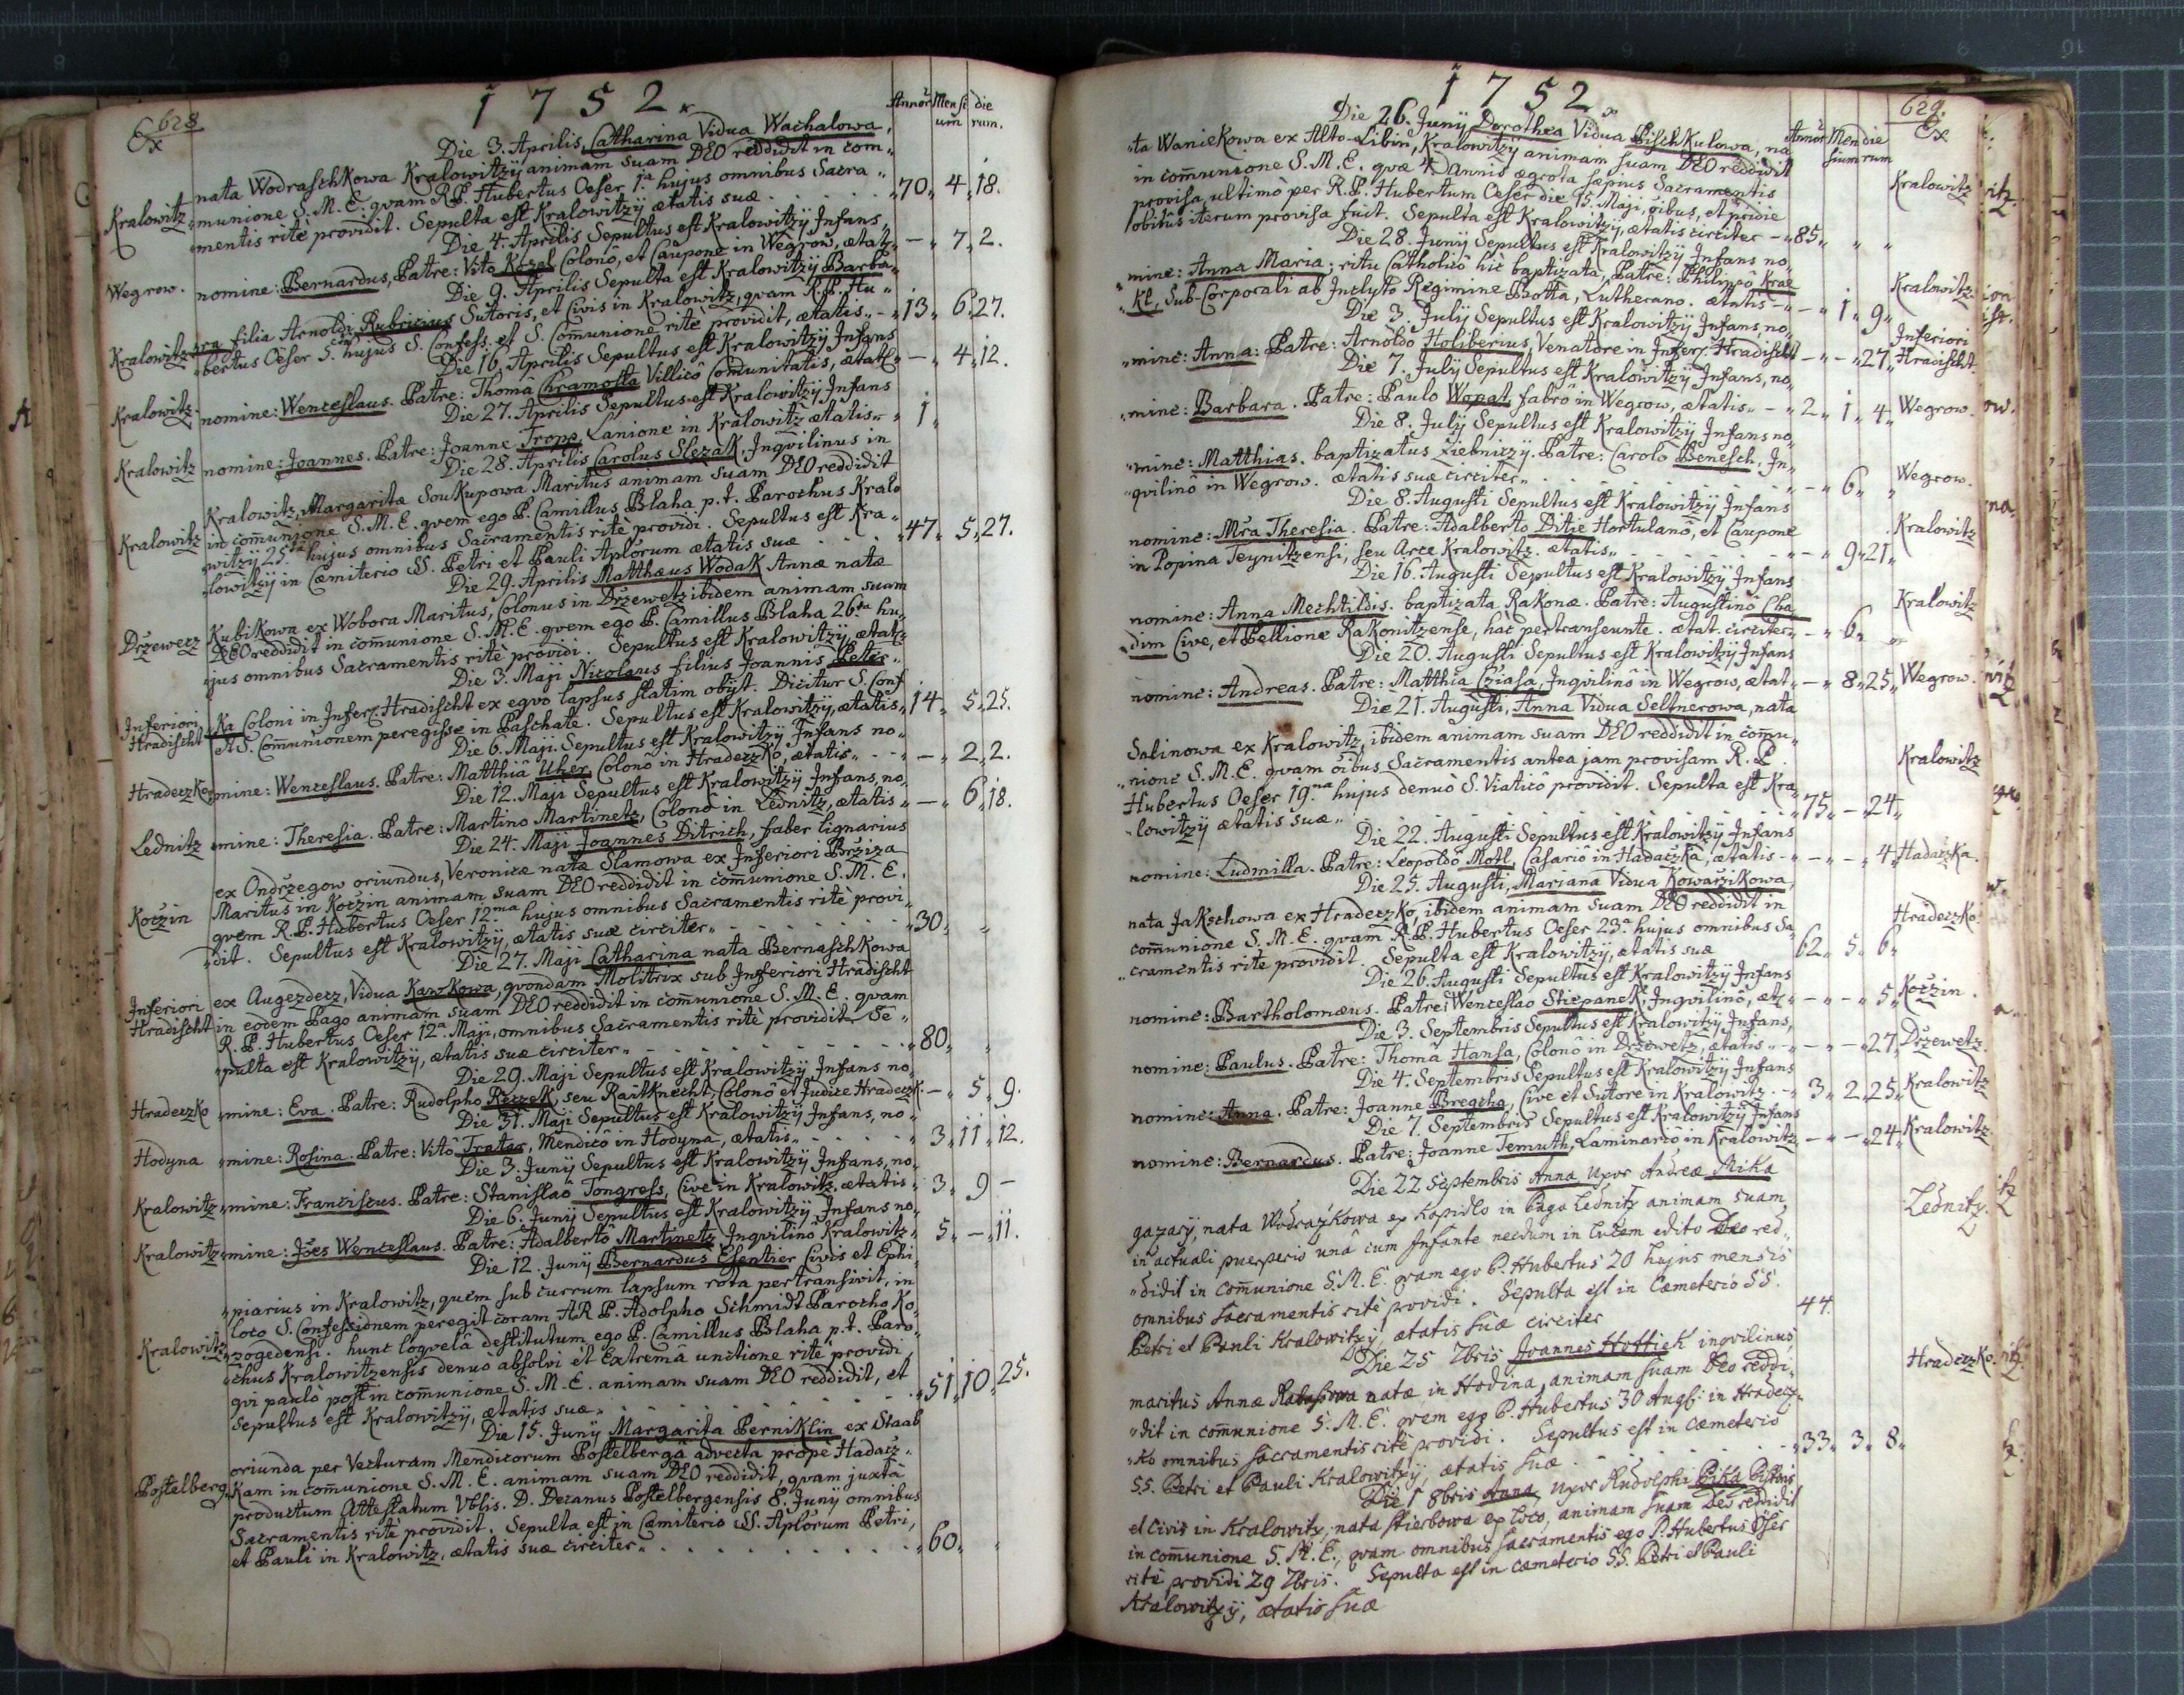 628
Ex
1 7 5 2.
Annor. Mensium dierum.
Die 3. Aprilis, Catharina Vidua Wachalowa,
nata Wodraschkowa Kralowitzÿ animam suam DEO reddidit in com„
Kralowitz „munione S. M. E. qvam R. P. Hubertus Oeser 1.a hujus omnibus Sacra„
„mentis ritè providit. Sepulta est Kralowitzÿ ætatis suæ . . . „70„ 4„18.
Die 4. Aprilis Sepultus est Kralowitzÿ Infans,
Wegrow. nomine: Bernardus, Patre: Vito Kozel Colonô, et Caupone in Wegrow, ætat. „ — „ 7„ 2.
Die 9. Aprilis Sepulta est Kralowitzÿ Barba„
Kralowitz „ra filia Arnoldi Rubricius Sutoris, et Civis in Kralowitz, qvam R. P. Hu„
„bertus Oeser 5. hujus S. Confess. et S. Com̄unione ritè providit, ætatis „ — „13„ 6„27.
Die 16. Aprilis Sepultus est Kralowitzÿ Infans
Kralowitz. nomine: Wenceslaus. Patre: Thomâ Chramosta Villicô Com̄unitatis, ætat. „ — „ 4„12.
Die 27. Aprilis Sepultus est Kralowitzÿ Infans
Kralowitz nomine: Joannes. Patre: Joanne Tropp, Lanione in Kralowitz ætatis „ „ 1 „
Die 28. Aprilis Carolus Slezak, Inqvilinus in
Kralowitz, Margaritæ Soukupowa Maritus animam suam DEO reddidit
Kralowitz in com̄unione S. M. E. qvem ego P. Camillus Blaha p. t. Parochus Kralo„
„witzÿ 25.ta hujus omnibus Sacramentis ritè providi. Sepultus est Kra„
„lowitzÿ in Cæmiterio SS. Petri et Pauli Aplorum ætatis suæ . . . „47„ 5„27.
Die 29. Aprilis Matthæus Wodak Annæ natæ
Kubikowa ex Wobora Maritus, Colonus in Držewetz ibidem animam suam
Držewetz DEO reddidit in com̄unione S. M. E. qvem ego P. Camillus Blaha 26.ta hu„
„jus omnibus Sacramentis ritè providi. Sepultus est Kralowitzÿ, ætat.
Die 3. Maji Nicolaus filius Joannis Peter„
Inferiori Hradischt „ka Coloni in Infer. Hradischt ex eqvo lapsus statim obÿt. Dicitur S. Conf.
et S. Com̄unionem peregisse in Paschate. Sepultus est Kralowitzÿ, ætatis „14„ 5„25.
Die 6. Maji. Sepultus est Kralowitzÿ Infans no„
Hradeczko „mine: Wenceslaus. Patre: Matthiâ Uher, Colono in Hradeczko, ætatis „ . . „ — „ 2„ 2.
Die 12. Maji Sepultus est Kralowitzÿ Infans, no„
Lednitz „mine: Theresia. Patre: Martino Martinetz, Colonô in Lednitz, ætatis „ — „ 6„18.
Die 24. Maji Joannes Ditrich, faber lignarius
ex Ondržegow oriundus, Veronicæ natæ Slamowa ex Inferiori Bržiza
Koczin Maritus in Koczin animam suam DEO reddidit in com̄unione S. M. E.
qvem R. P. Hubertus Oeser 12.ma hujus omnibus Sacramentis ritè provi„
„dit. Sepultus est Kralowitzÿ, ætatis suæ circiter„ . . . „30„ „
Die 27. Maji Catharina nata Bernaschkowa
ex Augezdecz, Vidua Kawkowa, qvondam Molitrix sub Inferiori Hradischt
Inferiori Hradischt in eodem Pago animam suam DEO reddidit in com̄unione S. M. E. qvam
R. P. Hubertus Oeser 12.a Maji, omnibus Sacramentis ritè providit. Se„
„pulta est Kralowitzÿ, ætatis suæ circiter„ . . . „80„ „
Die 29. Maji Sepultus est Kralowitzÿ Infans no„
Hradeczko „mine: Eva. Patre: Rudolpho Reczek, seu Raitknecht, Colonô et Judice Hradeczk. — „ 5„ 9.
Die 31. Maji Sepultus est Kralowitzÿ Infans, no„
Hodyna „mine: Rosina. Patre: Vitô Tratar, Mendicô in Hodyna, ætatis„ . . . „ 3„11„12.
Die 3. Junÿ Sepultus est Kralowitzÿ Infans, no„
Kralowitz „mine: Franciscus. Patre: Stanislaô Tongress, Cive in Kralowitz, ætatis„ 3„ 9 —
Die 6. Junÿ Sepultus est Kralowitzÿ Infans no„
Kralowitz „mine: Jões Wenceslaus. Patre: Adalbertô Martinetz Inqvilinô Kralowitz„ 5„ — „11.
Die 12. Junÿ Bernardus Esentier Civis et Ephi„
„piarius in Kralowitz, quem sub currum lapsum rota pertransivit, in
loco S. Confessionem peregit coram AR P. Adolpho Schmidt Parocho Ko„
Kralowitz „zogedensi. hunc loqvelâ destitutum ego P. Camillus Blaha p. t. Paro„
„chus Kralowitzensis denuò absolvi et Extremâ unctione ritè providi,
qvi paulò post in com̄unione S. M. E. animam suam DEO reddidit, et
Sepultus est Kralowitzÿ, ætatis suæ„ . . . „51„10„25.
Die 15. Junÿ Margarita Berniklin ex Staab
oriunda per Vecturam Mendicorum Postelbergâ advecta propè Hadacz„
Postelberg „kam in com̄unione S. M. E. animam suam DEO reddidit, qvam juxta
productum Attestatum Vblis. D. Decanus Postelbergensis 8. Junÿ omnibus
Sacramentis ritè providit. Sepulta est in Cæmiterio SS. Aplorum Petri,
et Pauli in Kralowitz, ætatis suæ circiter„ . . . „60„ „
1 7 5 2.
629.
Ex
Annor. Mensium dierum
Die 26. Junÿ Dorothea Vidua Pischkulowa, na„
„ta Waniekowa ex Alto-Libin, Kralowitzÿ animam suam DEO reddidit
in com̄unione S. M. E. qvæ 4 annis ægrota sæpius Sacramentis Kralowitz
provisa, ultimò per R. P. Hubertum Oeser die 15. Maji, õibus, et pridie
obitûs iterum provisa fuit. Sepulta est Kralowitzÿ, ætatis circiter — „85„ „ „
Die 28. Junÿ Sepultus est Kralowitzÿ Infans no„
„mine: Anna Maria, ritu Catholicô hic baptizata, Patre: Philippô Krae„ Kralowitz
„kl, Sub-Corporali ab Inclyto Regimine Botta, Lutherano. ætatis — „ — „ 1„ 9„
Die 3. Julÿ Sepultus est Kralowitzÿ Infans, no„
„mine: Anna: Patre: Arnoldo Holiberius, Venatore in Infer. Hradischt — „ — „27„ Inferiori Hradischt.
Die 7. Julÿ Sepultus est Kralowitzÿ Infans, no„
„mine: Barbara. Patre: Paulo Wopat, fabrô in Wegrow, ætatis„ — „ 2„ 1„ 4„ Wegrow.
Die 8. Julÿ Sepultus est Kralowitzÿ Infans no„
„mine: Matthias. baptizatus Žiebnitzÿ. Patre: Carolô Benesch, In„
„qvilinô in Wegrow. ætatis suæ circiter„ . . . „ — „ 6„ „ Wegrow.
Die 8. Augusti Sepultus est Kralowitzÿ Infans
nomine: Mra Theresia. Patre: Adalberto Ditje Hortulanô, et Caupone Kralowitz
in Popina Teynitzensi, seu Arce Kralowitz. ætatis„ . . . „ — „ 9„21„
Die 16. Augusti Sepultus est Kralowitzÿ Infans
nomine: Anna Mechtildis. baptizata Rakonæ. Patre: Augustinô Cha„ Kralowitz
„dim Cive, et Pellione Rakonitzense, hàc pertranseunte. ætat. circiter„ — „ 6„ „
Die 20. Augusti Sepultus est Kralowitzÿ Infans
nomine: Andreas. Patre: Matthia Cziasa, Inqvilinô in Wegrow, ætat„ — „ 8„25„ Wegrow.
Die 21. Augusti, Anna Vidua Seltnerowa, nata
Salinowa ex Kralowitz, ibidem animam suam DEO reddidit in com̄u„
„nione S. M. E. qvam õibus Sacramentis antea jam provisam R. P. Kralowitz
Hubertus Oeser 19.na hujus denuò S. Viaticô providit. Sepulta est Kra„
„lowitzÿ ætatis suæ„ . . . „75„ — „24„
Die 22. Augusti Sepultus est Kralowitzÿ Infans
nomine: Ludmilla. Patre: Leopoldô Motl, Casariô in Hadaczka, ætatis — „ — „ — „ 4„ Hadaczka.
Die 25. Augusti, Mariana Vidua Kowarzikowa,
nata Jakschowa ex Hradeczko, ibidem animam suam DEO reddidit in
com̄unione S. M. E. qvam R. P. Hubertus Oeser 23.a hujus omnibus Sa„ Hradeczko.
„cramentis ritè providit. Sepulta est Kralowitzÿ, ætatis suæ 62„ 5„ 6„
Die 26. Augusti Sepultus est Kralowitzÿ Infans
nomine: Bartholomæus. Patre: Wenceslao Stiepanek, Inqvilinô, æt. „ — „ — „ 5„ Koczin.
Die 3. Septembris Sepultus est Kralowitzÿ Infans,
nomine: Paulus. Patre: Thomâ Hansa, Colonô in Držewetz, ætatis„ — „ — „27„ Držewetz.
Die 4. Septembris Sepultus est Kralowitzÿ Infans
nomine: Anna. Patre: Joanne Bregcha, Cive et Sutore in Kralowitz. — „ 3„ 2„25„ Kralowitz
Die 7. Septembris Sepultus est Kralowitzÿ Infans
nomine: Bernardus. Patre: Joanne Temuth, Laminariô in Kralowitz — „ — „24„ Kralowitz
Die 22 Septembris Anna Uxor Andreæ Mika
gazarÿ, nata Wodrazkowa ex Kopidlo in Pago Lednitz animam suam Lednitz.
in actuali puerperio unâ cum Infante necdum in lucem edito Deo red„
„didit in com̄unione S. M. E. qvam ego P. Hubertus 20 hujus mensis
omnibus sacramentis ritè providi. Sepulta est in Cæmeterio SS.
Petri et Pauli Kralowitzÿ, ætatis suæ circiter 44.
Die 25 7bris Joannes Hottiek inqvilinus,
maritus Annæ natæ in Hodina, animam suam Deo reddi„ Hradeczko.
„dit in com̄unione S. M. E. qvem ego P. Hubertus 30 Augti in Hradecz„
„ko omnibus sacramentis ritè providi. Sepultus est in cæmeterio
SS. Petri et Pauli Kralowitzÿ, ætatis suæ . . . „33„ 3„ 8„
Die 1 8bris Anna, Uxor Rudolphi Pika Pistoris
et civis in Kralowitz, nata Stierbowa ex loco, animam suam Deo reddidit
in com̄unione S. M. E., qvam omnibus sacramentis ego P. Hubertus Öser
ritè providi 29 7bris. Sepulta est in cæmeterio SS. Petri et Pauli
Kralowitzÿ, ætatis suæ